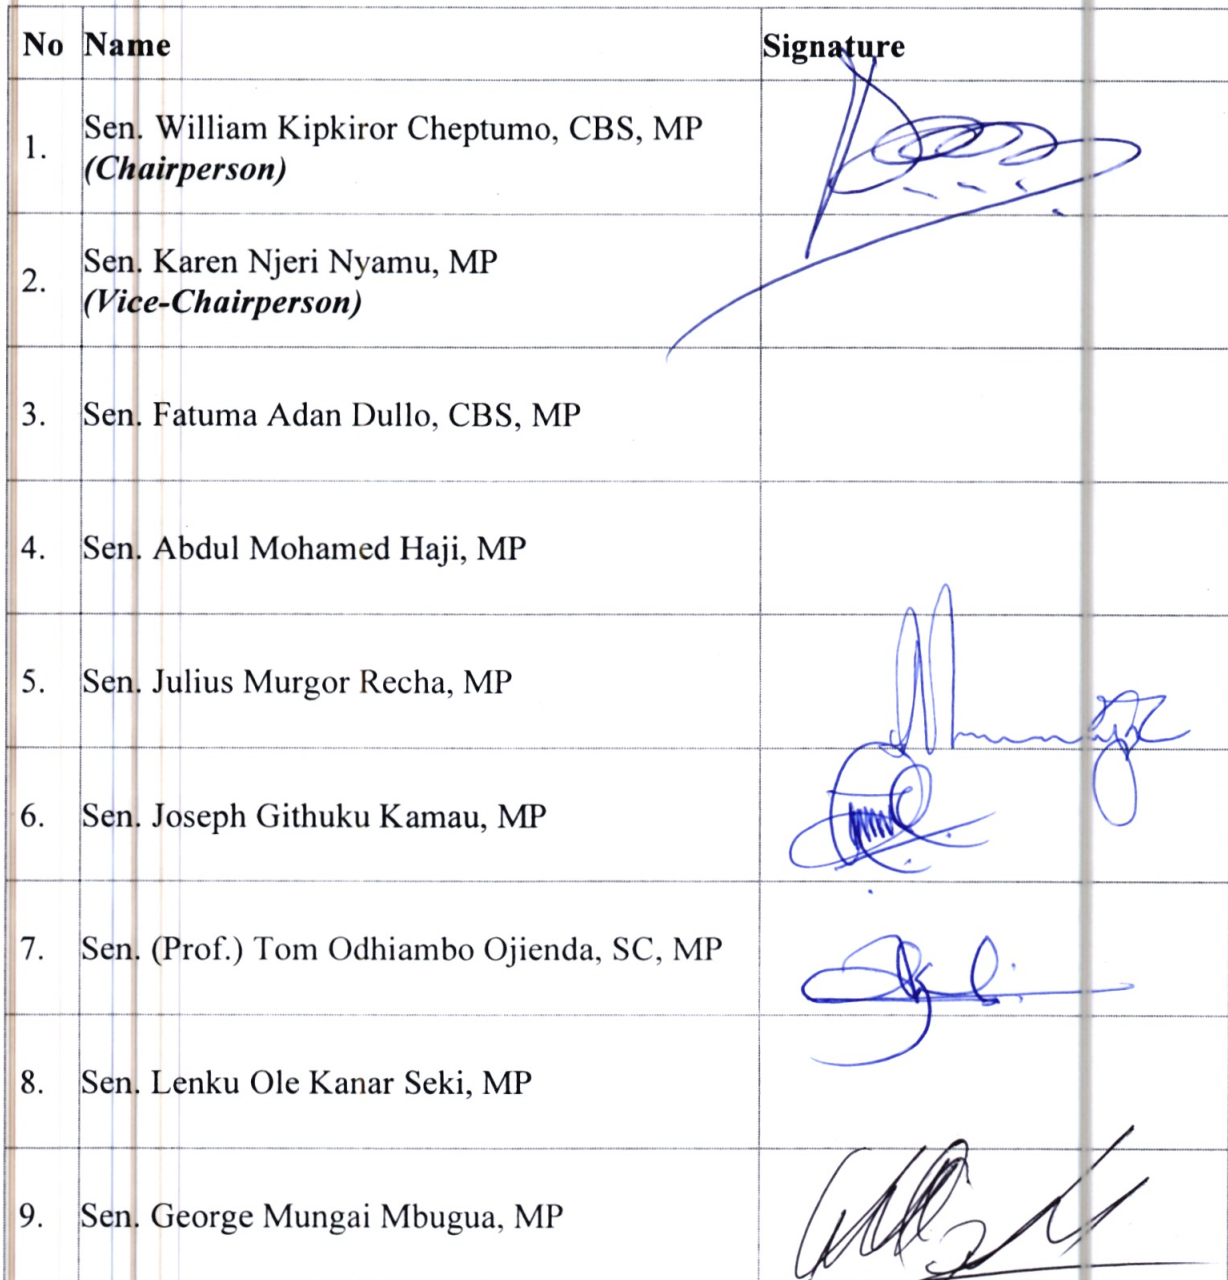 No Name Signature
1. Sen. William Kipkiror Cheptumo, CBS, MP
(Chairperson)
2. Sen. Karen Njeri Nyamu, MP
(Vice-Chairperson)
3. Sen. Fatuma Adan Dullo, CBS, MP
4. Sen. Abdul Mohamed Haji, MP
5. Sen. Julius Murgor Recha, MP
6. Sen. Joseph Githuku Kamau, MP
7. Sen. (Prof.) Tom Odhiambo Ojienda, SC, MP
8. Sen. Lenku Ole Kanar Seki, MP
9. Sen. George Mungai Mbugua, MP